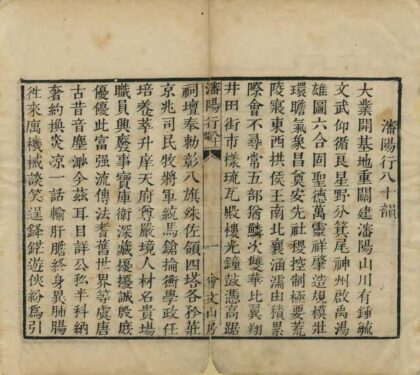 瀋陽行八十韻
大業開基地重關建瀋陽山川有鍾毓
文武仰循良星野分箕尾神州啟禹湯
雄圖六合固聖德萬靈祥肇造規模壯
環瞻氣象昌奠安先社稷控制極要荒
陵寢東西拱侯王南北襄涵濡由積累
際會不尋常五部猶鱗次雙華比翼翔
井田街市樣琉瓦殿樓光鐘鼓憑高踞
瀋陽行
一
會文山房
祠壇奉勅彰八旗殊佐領四塔各分莊
京兆司民牧將軍統馬鎗掄衡學政任
培養萃升庠天府尊嚴境人材名貴場
職員興慶事寶庫衛深藏擾擾誠殷庶
優優此富强流傳法耆舊世界等虞唐
古昔音塵渺今茲耳目詳公私半科納
奢約換炎涼一話輸肝膽終身異肺腸
徃來厲機械談笑逞鋒鋩遊俠紛爲引